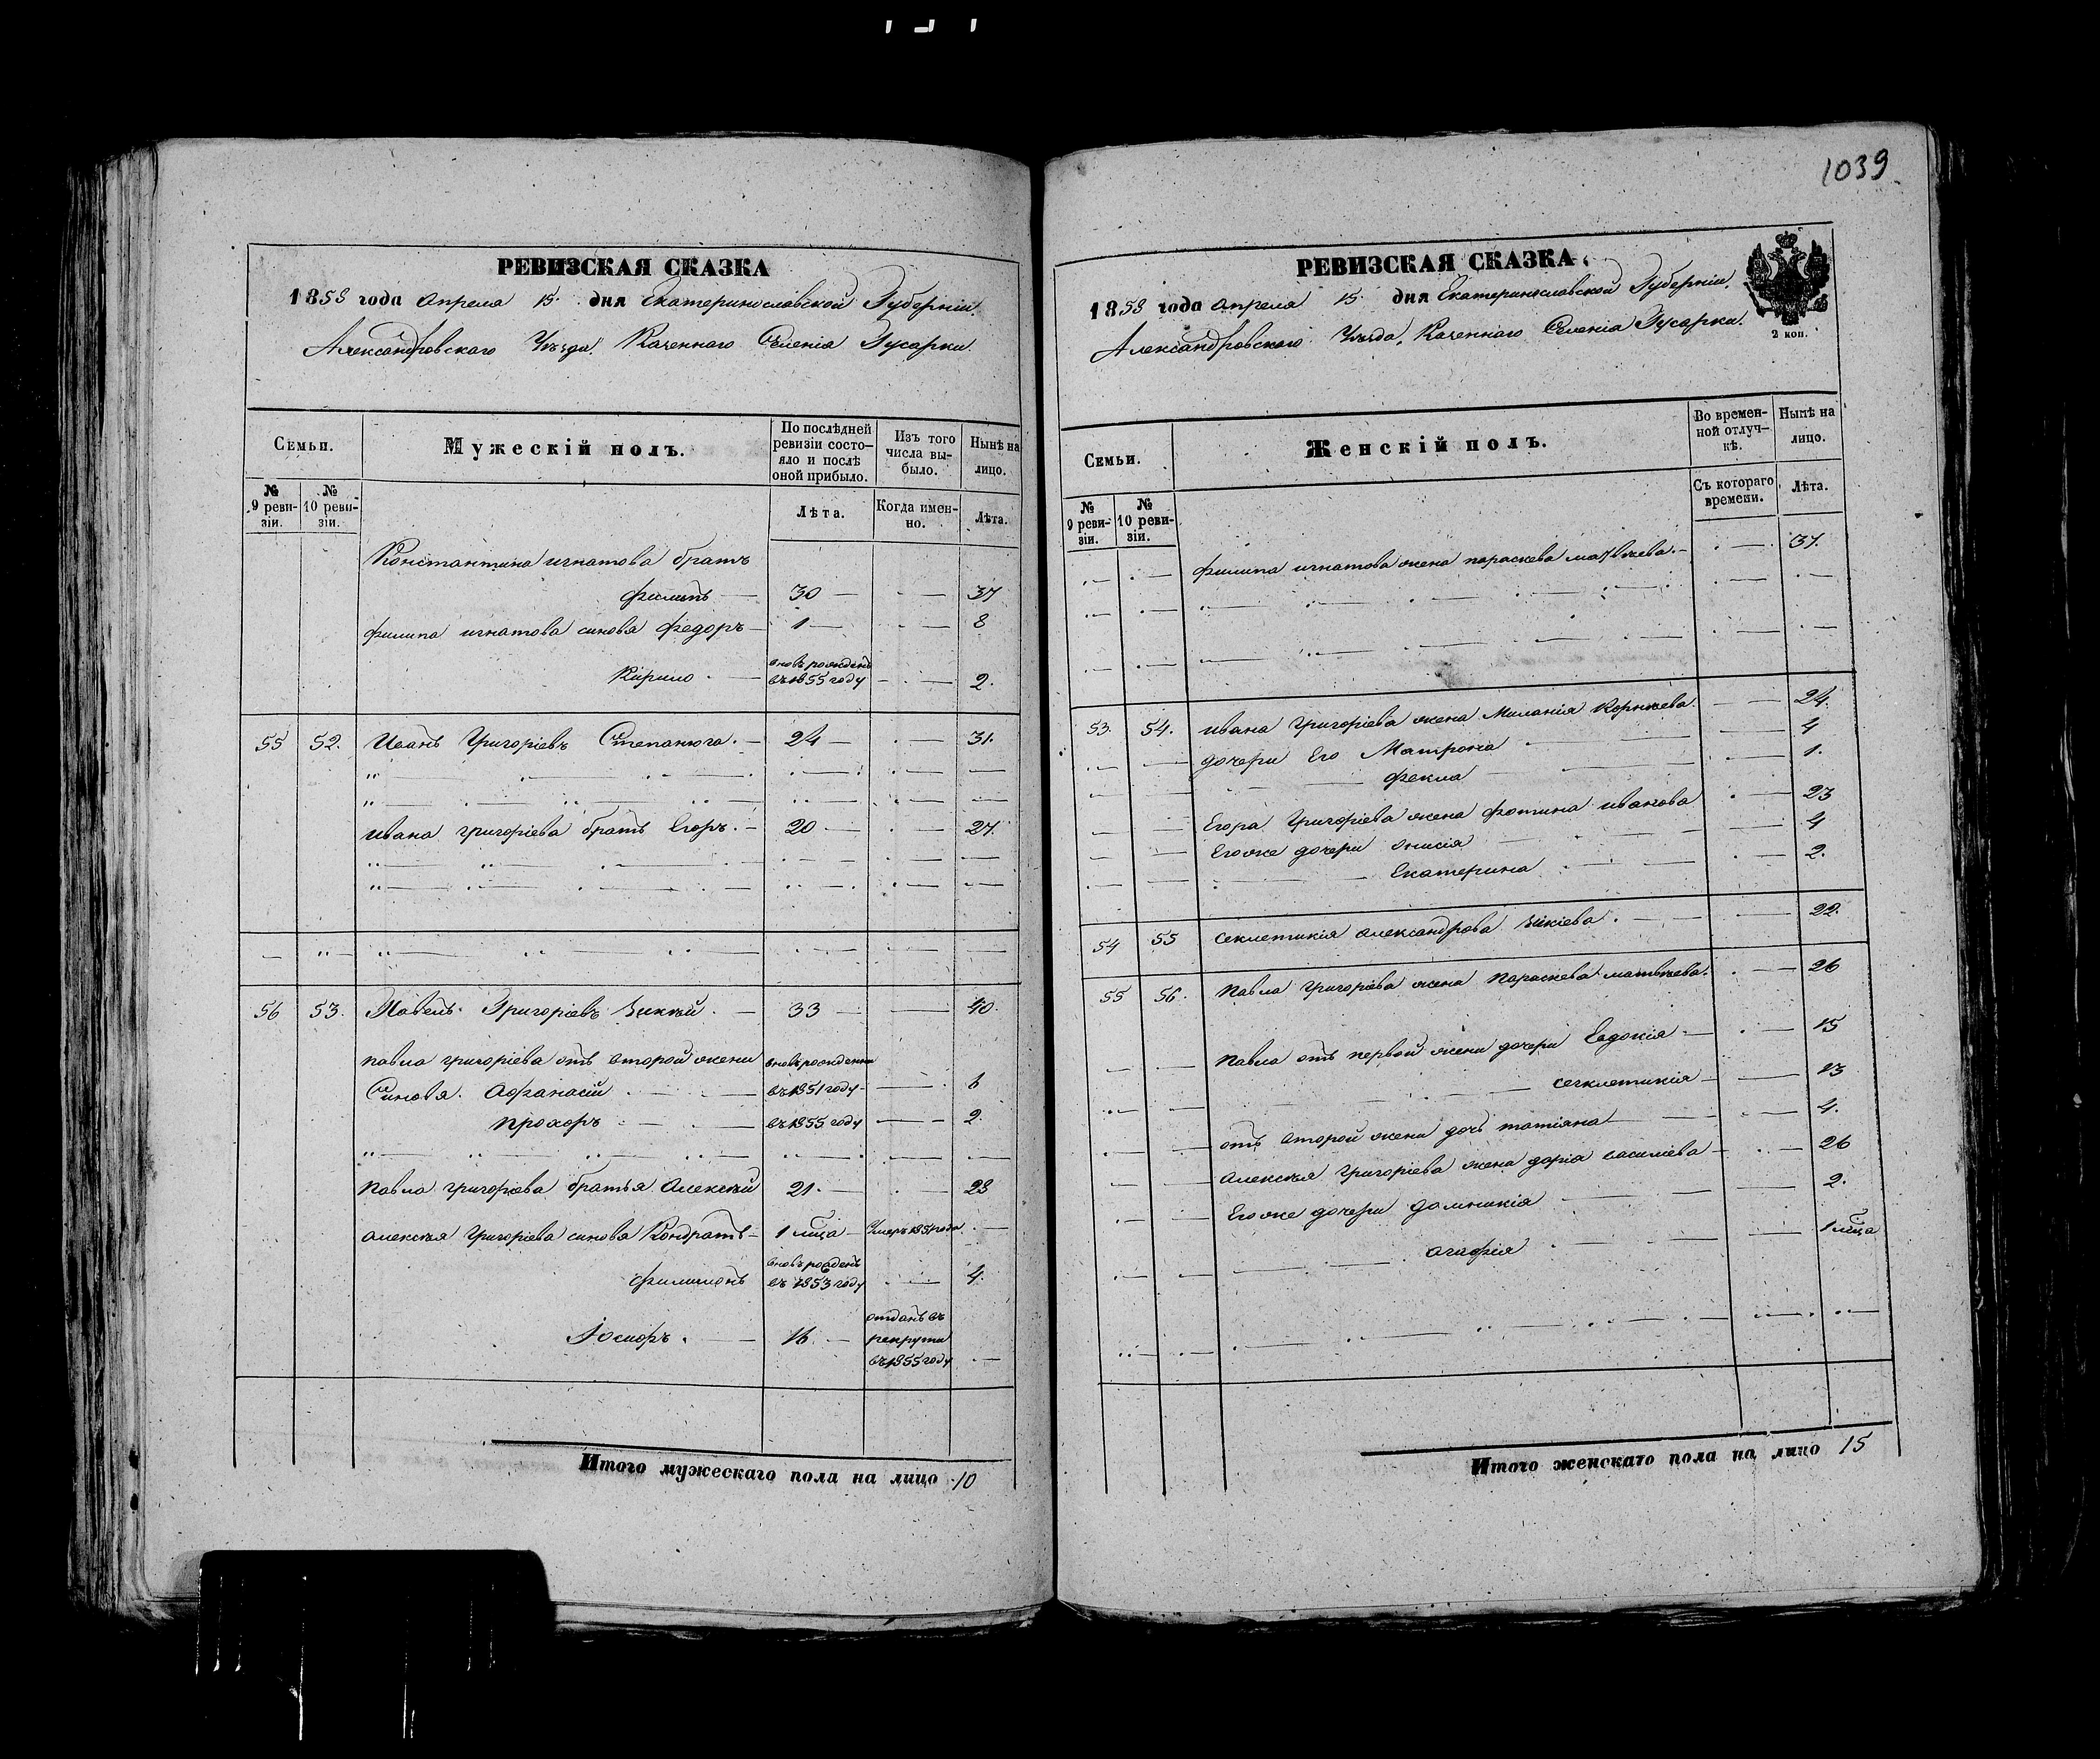 1039
РЕВИЗСКАЯ СКАЗКА
1858 года апреля 15 дня Екатеринославской Губерніи.
Александровскаго Уѣзда. Казеннаго Селенія Гусарки.
Семьи.
Мужескій полъ.
По послѣдней ревизіи состояло и послѣ оной прибыло.
Изъ того числа выбыло.
Нынѣ на лицо.
№ 9 ревизіи.
№ 10 ревизіи.
Лѣта.
Когда именно.
Лѣта.
Константина игнатова братъ
филипъ 30 37
филипа игнатова синовя Федоръ 1 8
Кирило вновь рожденъ въ 1855 году 2.
55 52. Иванъ Григоріевъ Степанюга. 24 31.
ивана григоріева братъ Егоръ. 20 27.
56 53. Павелъ Григоріевъ 33 40.
павла григоріева отъ второй жени вновь рожденни
Синовя. Афанасій въ 1851 году 6
прохоръ въ 1855 году 2.
павла григоріева братья Алексѣй 21. 28
алексѣя григоріева синовя Кондратъ 1 м̃ца Умеръ 1851 года
филимонъ вновь рожденъ въ 1853 году 4.
Іосифъ. 16. отданъ въ рекрути въ 1855 году
Итого мужескаго пола на лицо 10
РЕВИЗСКАЯ СКАЗКА.
1858 года апреля 15 дня Екатеринославской Губерніи.
Александровскаго Уѣзда, Казеннаго Селенія Гусарки.
2 коп.
Семьи.
Женскій полъ.
Во временной отлучкѣ.
Нынѣ на лицо.
№ 9 ревизіи.
№ 10 ревизіи.
Съ котораго времени.
Лѣта.
филипа игнатова жена параскева матвѣева. 37.
53. 54. ивана григоріева жена Миланія Корнѣева. 24.
дочери Его Матрона 4
фекла 1.
Егора григоріева жена фотина иванова 23
Егоже дочери Онисія 4
Екатерина 2.
54 55 секлетикія александрова 22.
55 56. павла григоріева жена параскева матвѣева. 26
павла отъ первой жени дочери Евдокія 15
секлетикія 13
отъ второй жени дочь татіяна 4.
алексѣя григоріева жена дарія василіева 26
Егоже дочери домникія 2.
агафія 1 м̃ца
Итого женскаго пола на лицо 15